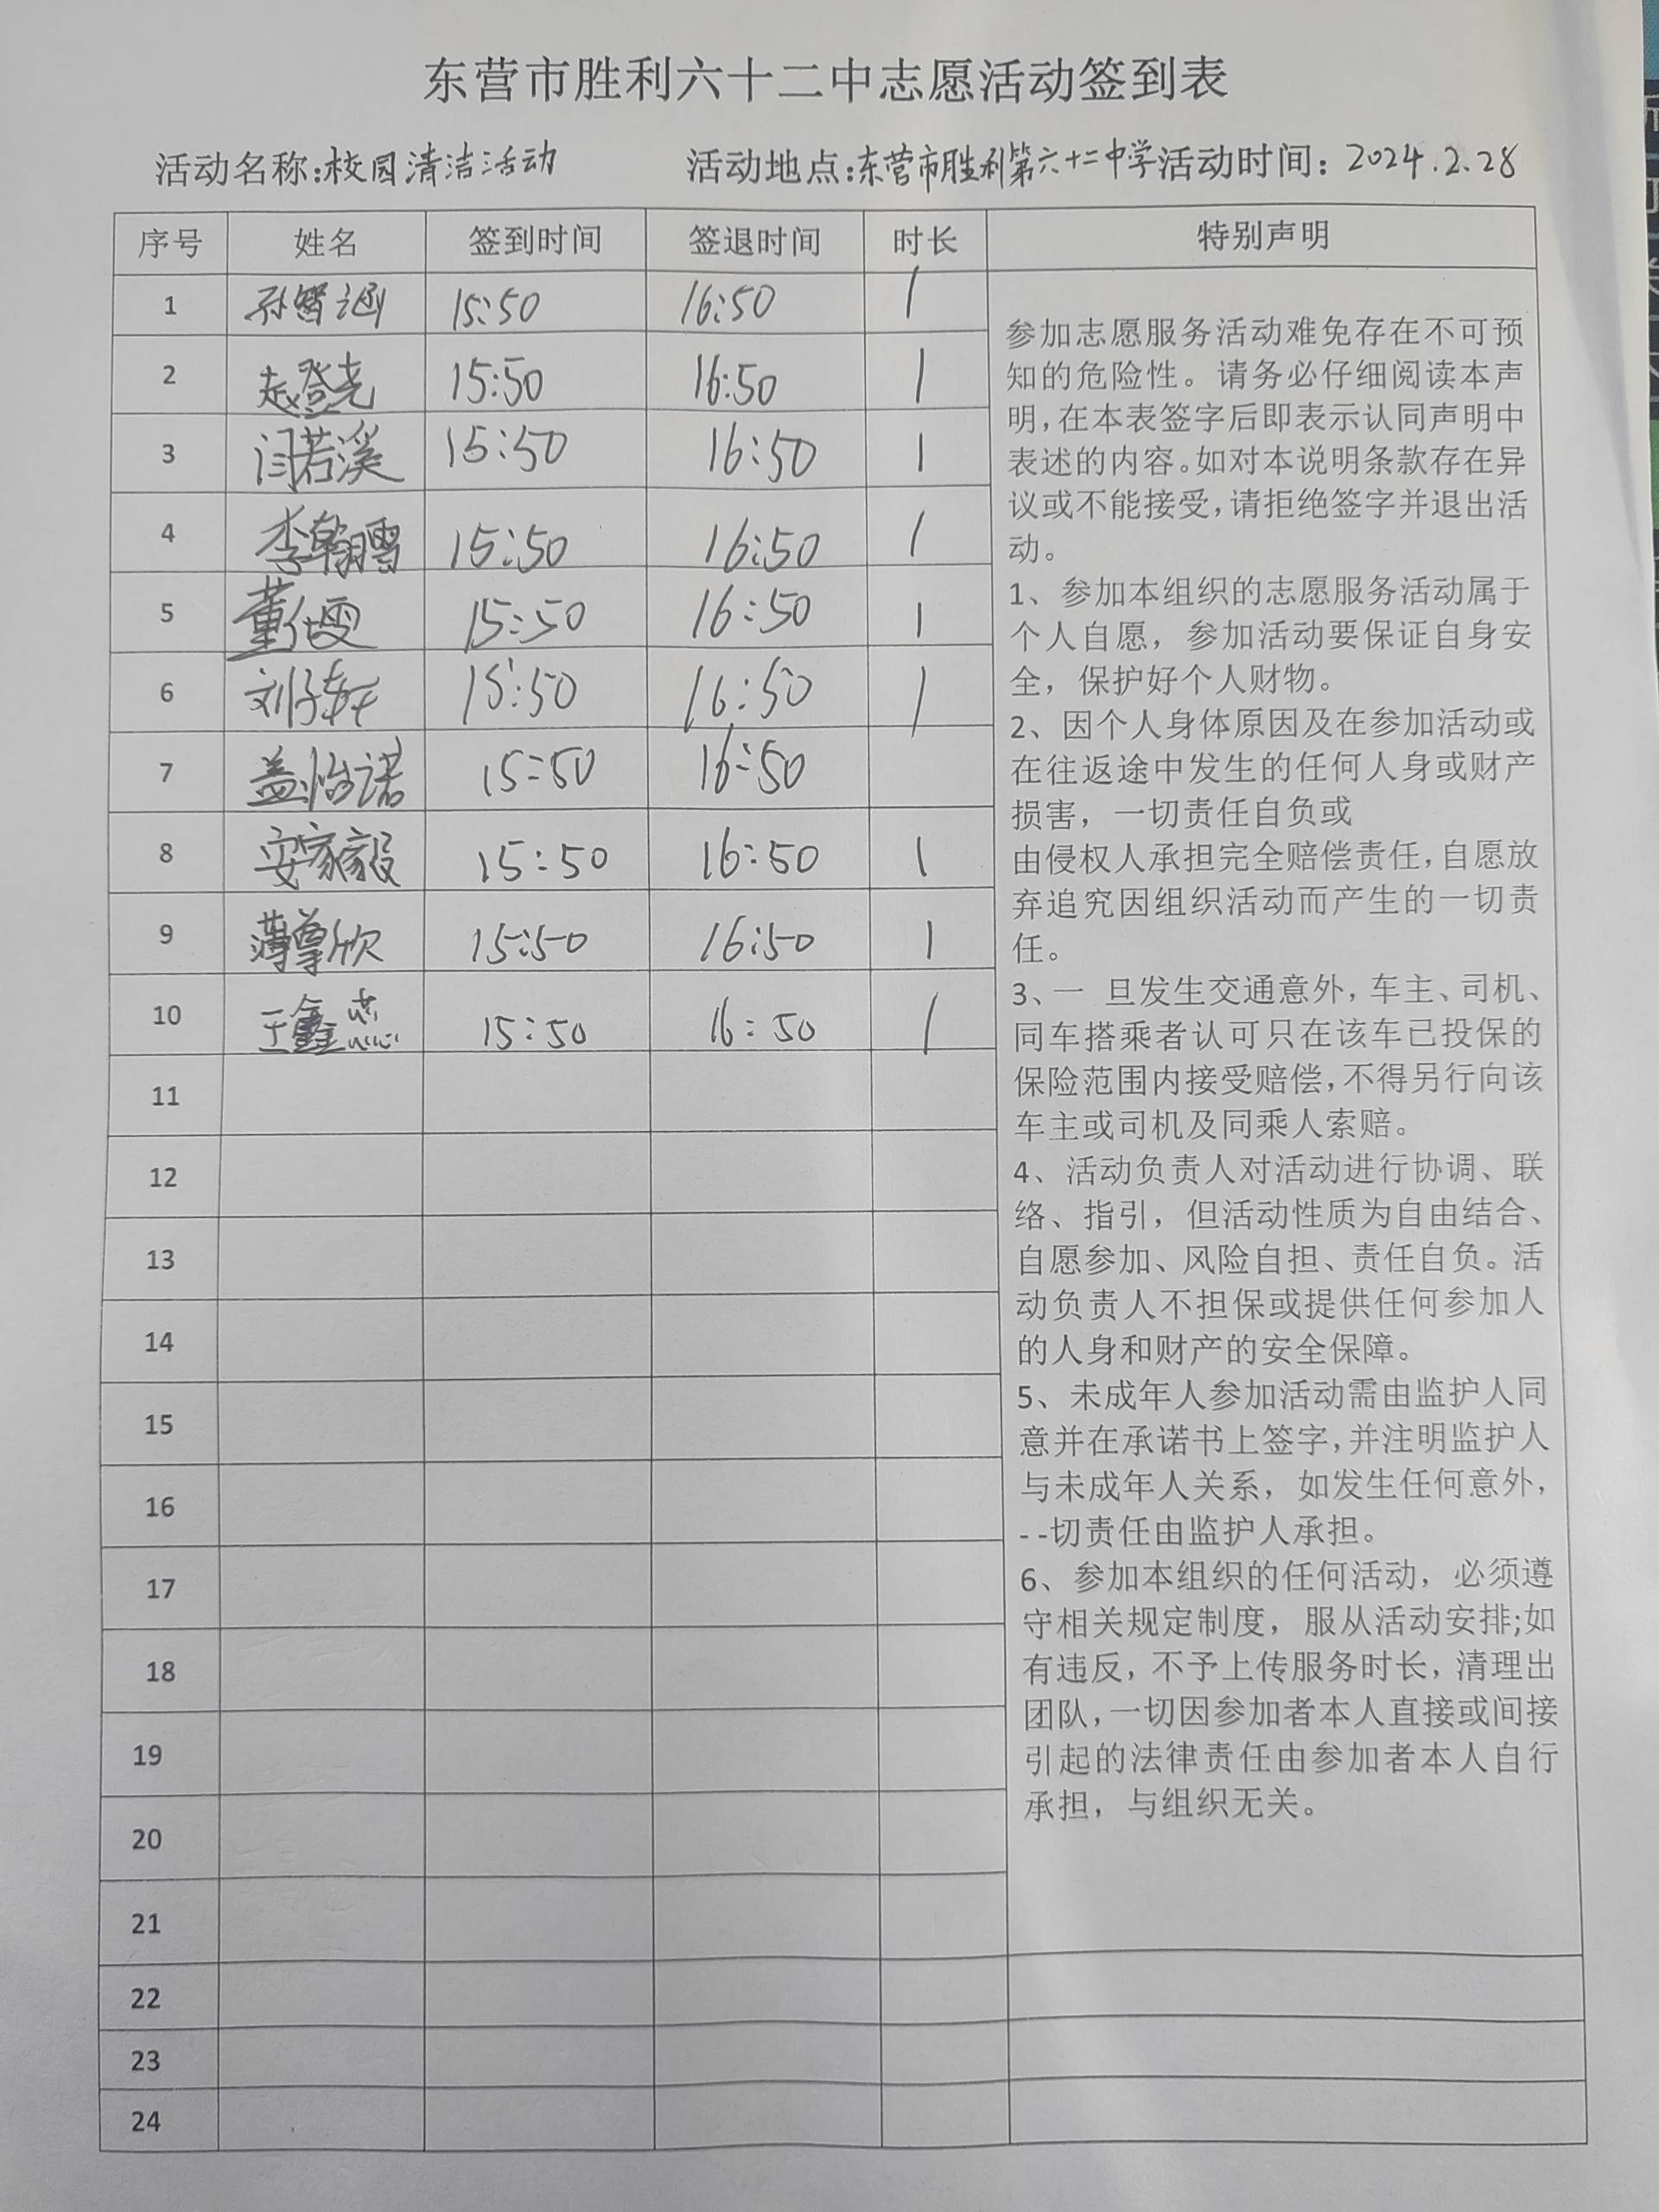 东营市胜利六十二中志愿活动签到表
活动名称:校园清洁活动 活动地点:东营市胜利第六十二中学活动时间：2024.2.28
序号 姓名 签到时间 签退时间 时长 特别声明
1 孙智涵 15:50 16:50 1
2 赵登尧 15:50 16:50 1
3 闫若溪 15:50 16:50 1
4 李翰雪 15:50 16:50 1
5 董佳雯 15:50 16:50 1
6 刘子轩 15:50 16:50 1
7 盖怡诺 15:50 16:50
8 安家毅 15:50 16:50 1
9 薄尊欣 15:50 16:50 1
10 于鑫 15:50 16:50 1
11
12
13
14
15
16
17
18
19
20
21
22
23
24
参加志愿服务活动难免存在不可预
知的危险性。请务必仔细阅读本声
明,在本表签字后即表示认同声明中
表述的内容。如对本说明条款存在异
议或不能接受,请拒绝签字并退出活
动。
1、参加本组织的志愿服务活动属于
个人自愿，参加活动要保证自身安
全，保护好个人财物。
2、因个人身体原因及在参加活动或
在往返途中发生的任何人身或财产
损害，一切责任自负或
由侵权人承担完全赔偿责任,自愿放
弃追究因组织活动而产生的一切责
任。
3、一 旦发生交通意外,车主、司机、
同车搭乘者认可只在该车已投保的
保险范围内接受赔偿,不得另行向该
车主或司机及同乘人索赔。
4、活动负责人对活动进行协调、联
络、指引，但活动性质为自由结合、
自愿参加、风险自担、责任自负。活
动负责人不担保或提供任何参加人
的人身和财产的安全保障。
5、未成年人参加活动需由监护人同
意并在承诺书上签字,并注明监护人
与未成年人关系，如发生任何意外，
--切责任由监护人承担。
6、参加本组织的任何活动，必须遵
守相关规定制度，服从活动安排;如
有违反，不予上传服务时长，清理出
团队,一切因参加者本人直接或间接
引起的法律责任由参加者本人自行
承担，与组织无关。